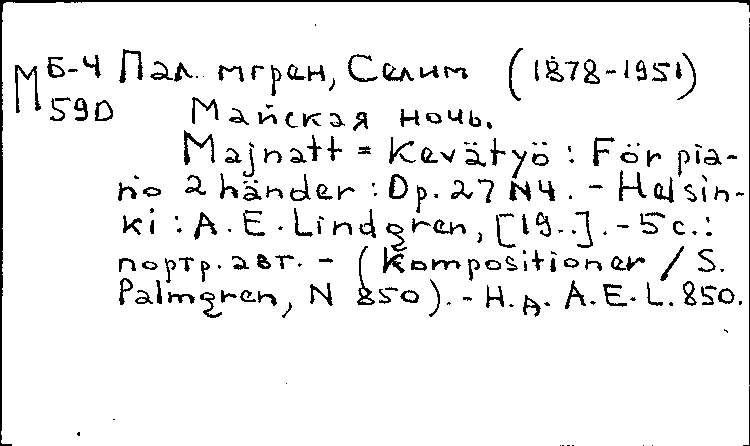 М Б-4 Пал..мгрен, Селим (1878-1951)
59D Майская ночь.
Majnatt = Kevätyö : För pia-
no 2 händer : Op. 27 N4. - Helsin-
ki : A. E. Lindgren, [19..]. - 5 с. :
портр. авт. - (Kompositioner / S.
Palmgren, N 850). - Н. д. A. E. L. 850.